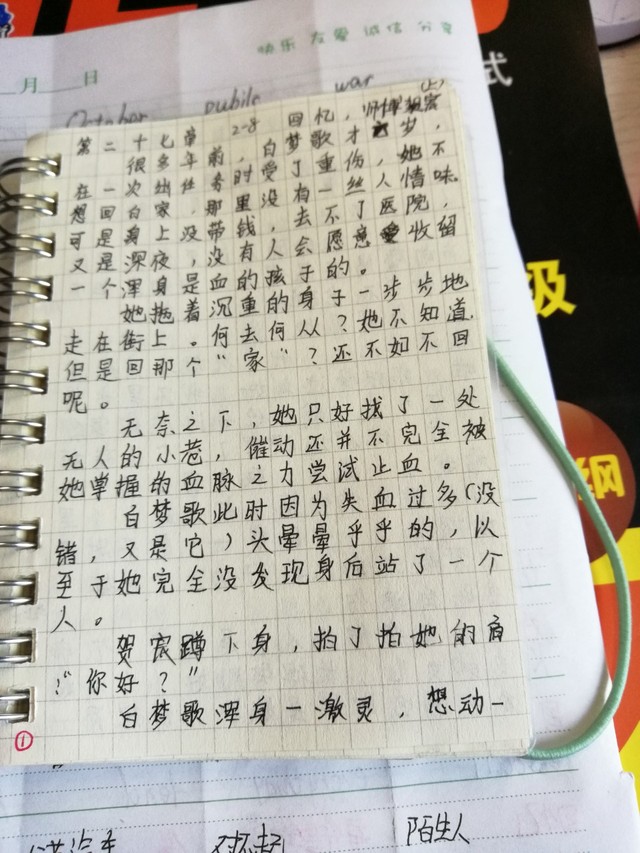 快乐 友爱 诚信 分享
月 日
October public war
式
第二十七章 2-8 回忆，师怿观察(上)
很多年前，白梦歌才 岁，
在一次出任务时受了重伤，她不
想回白家，那里没有一丝人情味。
可是身上没带钱，去不了医院，
又是深夜，没有人会愿意 收留
一个浑身是血的孩子的。
她拖着沉重的身子一步步地
走在街上。何去何从？她不知道.
但是回那个“家”？还不如不回
呢。
级
无奈之下，她只好找了一处
无人的小巷，催动还并不完全被
她掌握的血脉之力尝试止血。
纲
白梦歌此时因为失血过多(没
错，又是它)头晕晕乎乎的，以
至于她完全没发现身后站了一个
人。
贺宸蹲下身，拍了拍她的肩
:“你好？”
白梦歌浑身一激灵，想动一
①
对不起 陌生人